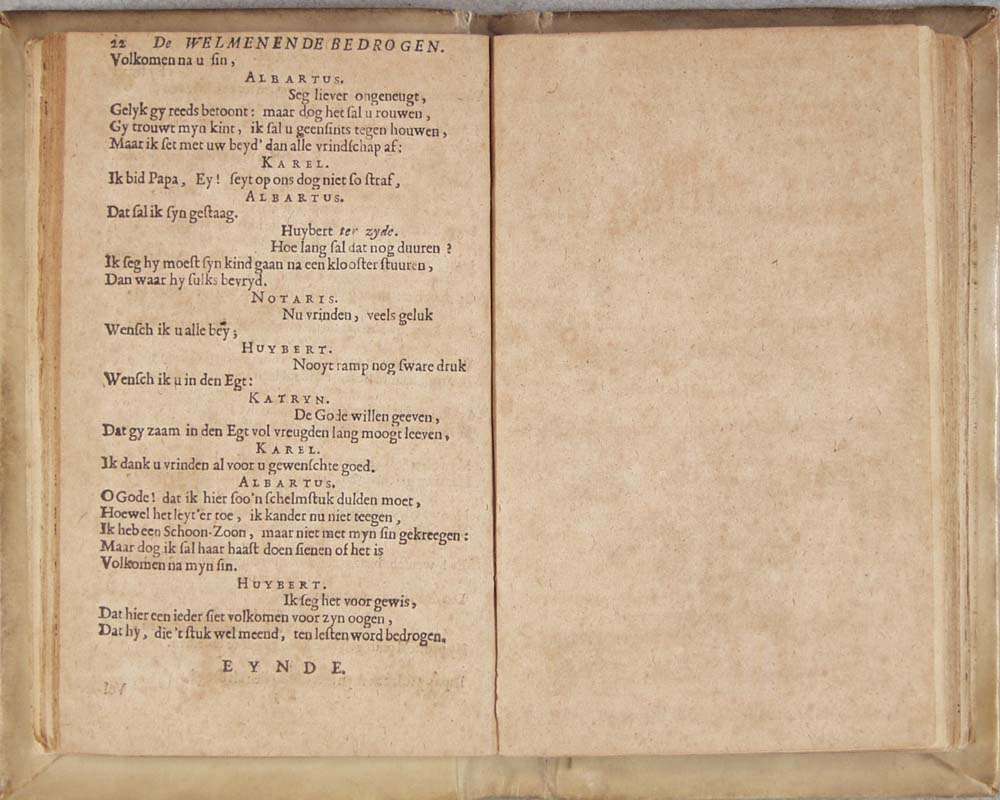 22 De WELMENENDE BEDROGEN.
Volkomen na u ſin,
ALBARTUS.
Seg liever ongeneugt,
Gelyk gy reeds betoont: maar dog het ſal u rouwen,
Gy trouwt myn kint, ik ſal u geenſints tegen houwen,
Maar ik ſet met uw beyd' dan alle vrindſchap af:
KAREL.
Ik bid Papa, Ey! ſeyt op ons dog niet ſo ſtraf,
ALBARTUS.
Dat ſal ik ſyn geſtaag.
Huybert ter zyde.
Hoe lang ſal dat nog duuren?
Ik ſeg hy moeſt ſyn kind gaan na een klooſter ſtuuren,
Dan waar hy ſulks bevryd.
NOTARIS.
Nu vrinden, veels geluk
Wenſch ik u alle bey;
HUYBERT.
Nooyt ramp nog ſware druk
Wenſch ik u in den Egt:
KATRYN.
De Gode willen geeven,
Dat gy zaam in den Egt vol vreugden lang moogt leeven,
KAREL.
Ik dank u vrinden al voor u gewenſchte goed.
ALBARTUS.
O Gode! dat ik hier ſoo'n ſchelmſtuk dulden moet,
Hoewel het leyt'er toe, ik kander nu niet teegen,
Ik heb een Schoon-Zoon, maar niet met myn ſin gekreegen:
Maar dog ik ſal haar haaſt doen ſienen of het is
Volkomen na myn ſin.
HUYBERT.
Ik ſeg het voor gewis,
Dat hier een ieder ſiet volkomen voor zyn oogen,
Dat hy, die 't ſtuk wel meend, ten leſten word bedrogen.
EYNDE.